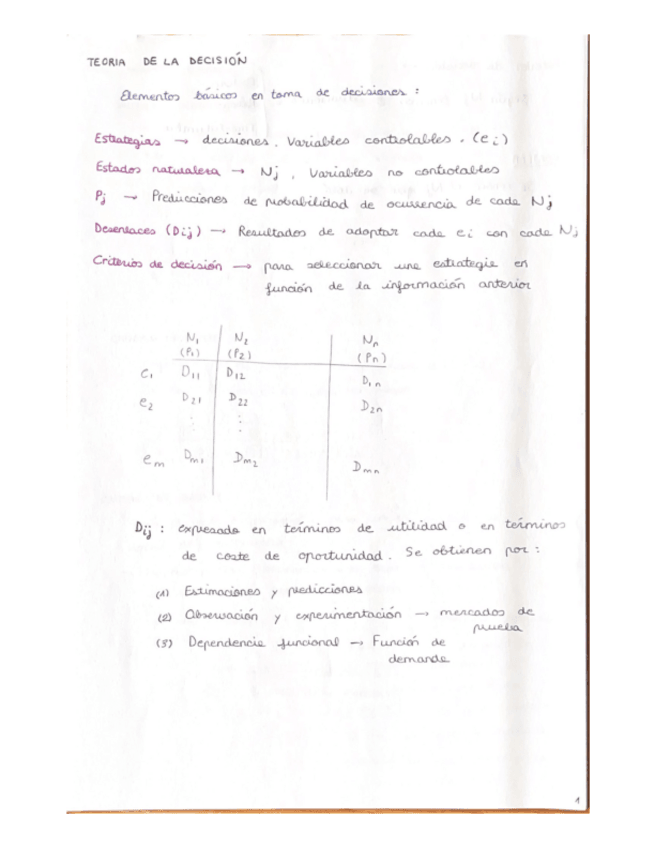 TEORIA DE LA DECISIÓN
Elementos básicos en toma de decisiones :
Estrategias → decisiones, Variables controlables. (ei)
Estados naturaleza → Nj, Variables no controlables
Pj → Predicciones de probabilidad de ocurrencia de cada Nj
Desenlaces (Dij) → Resultados de adoptar cada ei con cada Nj
Criterios de decisión → para seleccionar una estrategia en
función de la información anterior
N1 N2 Nn
(P1) (P2) (Pn)
e1 D11 D12 D1n
e2 D21 D22 D2n
em Dm1 Dm2 Dmn
Dij : expresado en términos de utilidad o en términos
de coste de oportunidad. Se obtienen por :
(1) Estimaciones y predicciones
(2) Observación y experimentación → mercados de
prueba
(3) Dependencia funcional → Función de
demanda
1